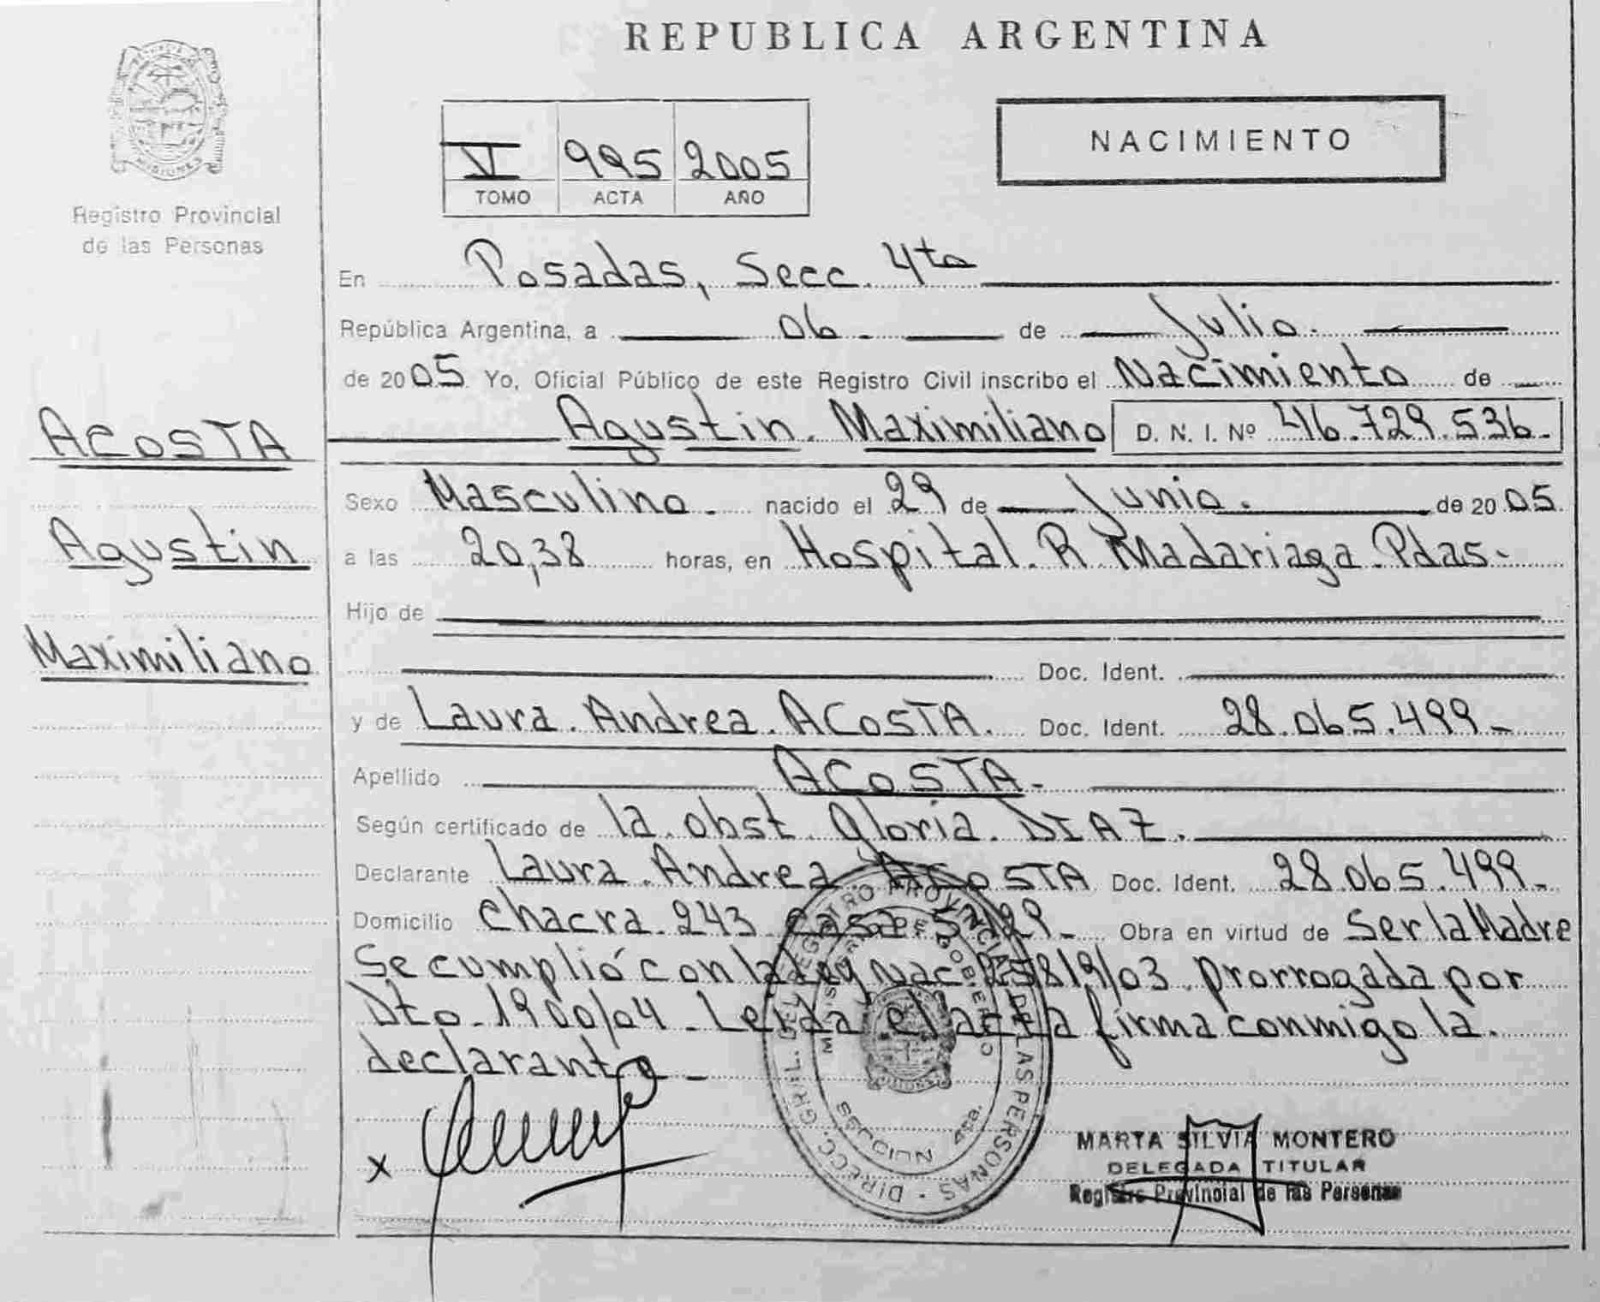 REPUBLICA ARGENTINA
MISIONES
Registro Provincial
de las Personas
V 995 2005
TOMO ACTA AÑO
NACIMIENTO
En Posadas, Secc. 4ta
República Argentina, a 06 de Julio.
de 2005. Yo, Oficial Público de este Registro Civil inscribo el Nacimiento de
Agustin. Maximiliano D. N. I. Nº 46.729.536.
ACOSTA
Agustin
Maximiliano
Sexo Masculino. nacido el 29 de Junio. de 2005.
a las 20,38 horas, en Hospital. R. Madariaga. Pdas-
Hijo de
Doc. Ident.
y de Laura. Andrea. ACOSTA. Doc. Ident. 28.065.499-
Apellido ACOSTA-
Según certificado de la. obst. Gloria. DIAZ.
Declarante Laura. Andrea. ACOSTA Doc. Ident. 28.065.499-
Domicilio Chacra. 243 casa Obra en virtud de Ser la Madre
Se cumplió con la Ley Nac. 25819/03. prorrogada por
Dto. 1900/04 - Leída el acta firma conmigo la.
declarante -
DIRECC. GRAL. DEL REGISTRO PROVINCIAL DE LAS PERSONAS
DE GOBIERNO
MISIONES
SECCION 4ta.
x
MARTA SILVIA MONTERO
DELEGADA TITULAR
Registro Provincial de las Personas